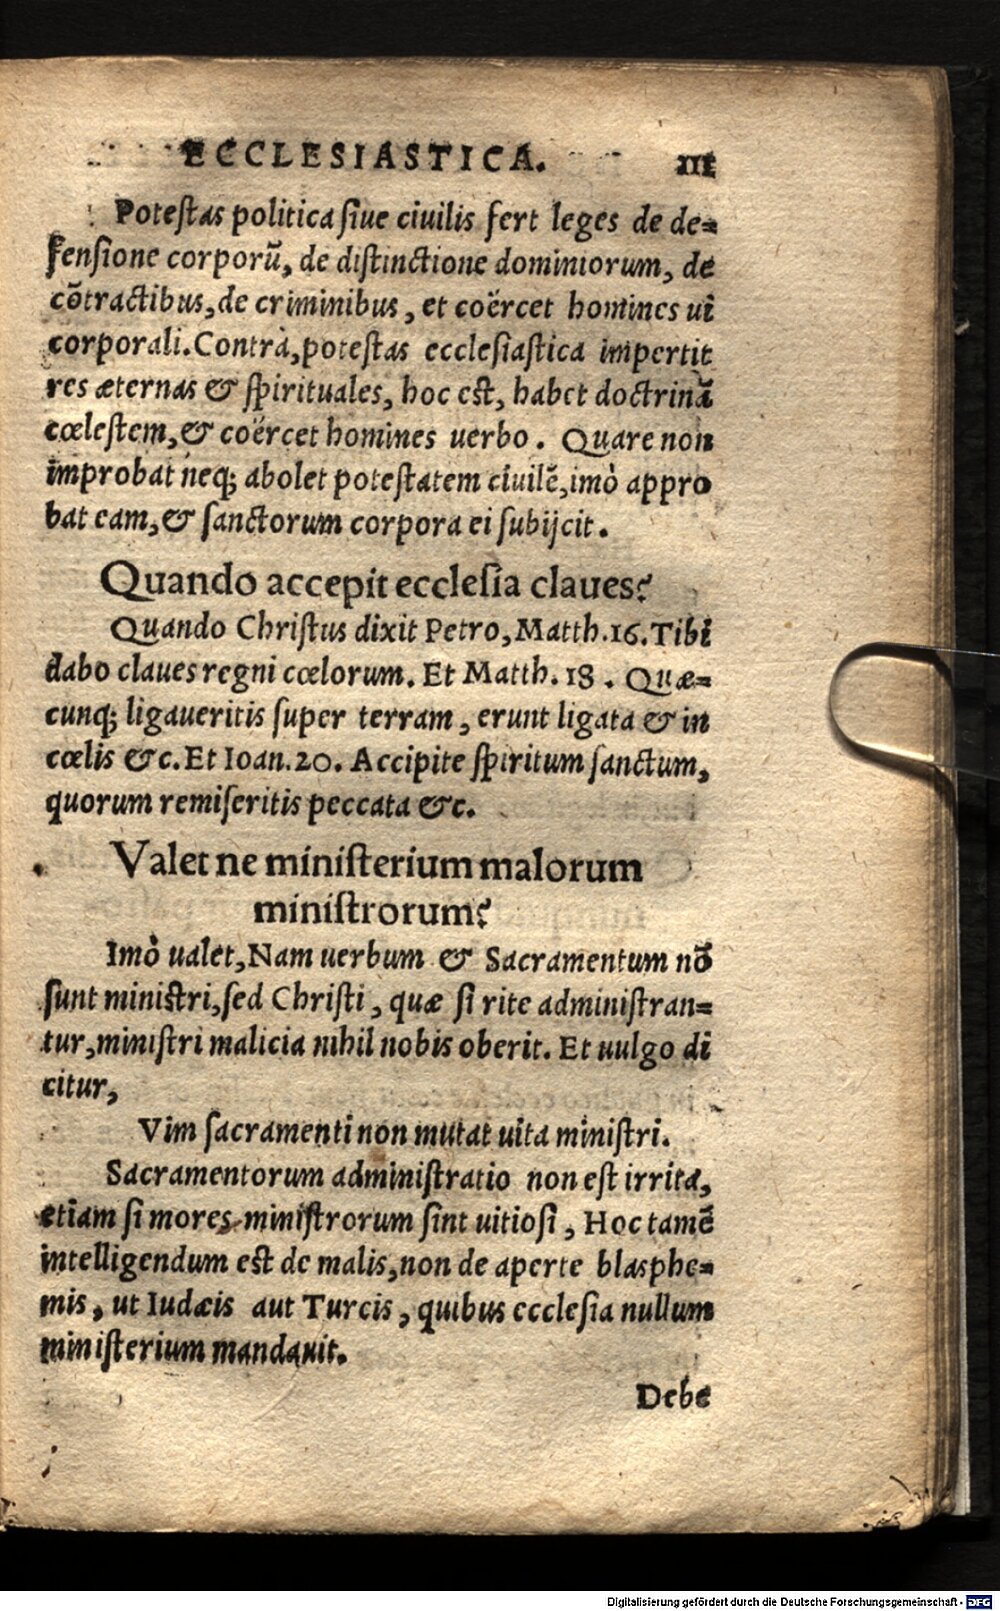 ECCLESIASTICA. III
Poteſtas politica ſiue ciuilis fert leges de de=
fenſione corporū, de diſtinctione dominiorum, de
cōtractibus, de criminibus, et coërcet homines ui
corporali. Contrà, poteſtas eccleſiaſtica impertit
res æternas & ſpirituales, hoc eſt, habet doctrinā
cœleſtem, & coërcet homines uerbo. Quare non
improbat neq; abolet poteſtatem ciuilē, imò appro
bat eam, & ſanctorum corpora ei ſubijcit.
Quando accepit eccleſia claues?
Quando Chriſtus dixit Petro, Matth. 16. Tibi
dabo claues regni cœlorum. Et Matth. 18. Quæ=
cunq; ligaueritis ſuper terram, erunt ligata & in
cœlis &c. Et Ioan. 20. Accipite ſpiritum ſanctum,
quorum remiſeritis peccata &c.
Valet ne miniſterium malorum
miniſtrorum?
Imò ualet, Nam uerbum & Sacramentum nō
ſunt miniſtri, ſed Chriſti, quæ ſi rite adminiſtran=
tur, miniſtri malicia nihil nobis oberit. Et uulgo di
citur,
Vim ſacramenti non mutat uita miniſtri.
Sacramentorum adminiſtratio non eſt irrita,
etiam ſi mores miniſtrorum ſint uitioſi, Hoc tamē
intelligendum eſt de malis, non de aperte blasphe=
mis, ut Iudæis aut Turcis, quibus eccleſia nullum
miniſterium mandauit.
Debe
Digitalisierung gefördert durch die Deutsche Forschungsgemeinschaft - DFG